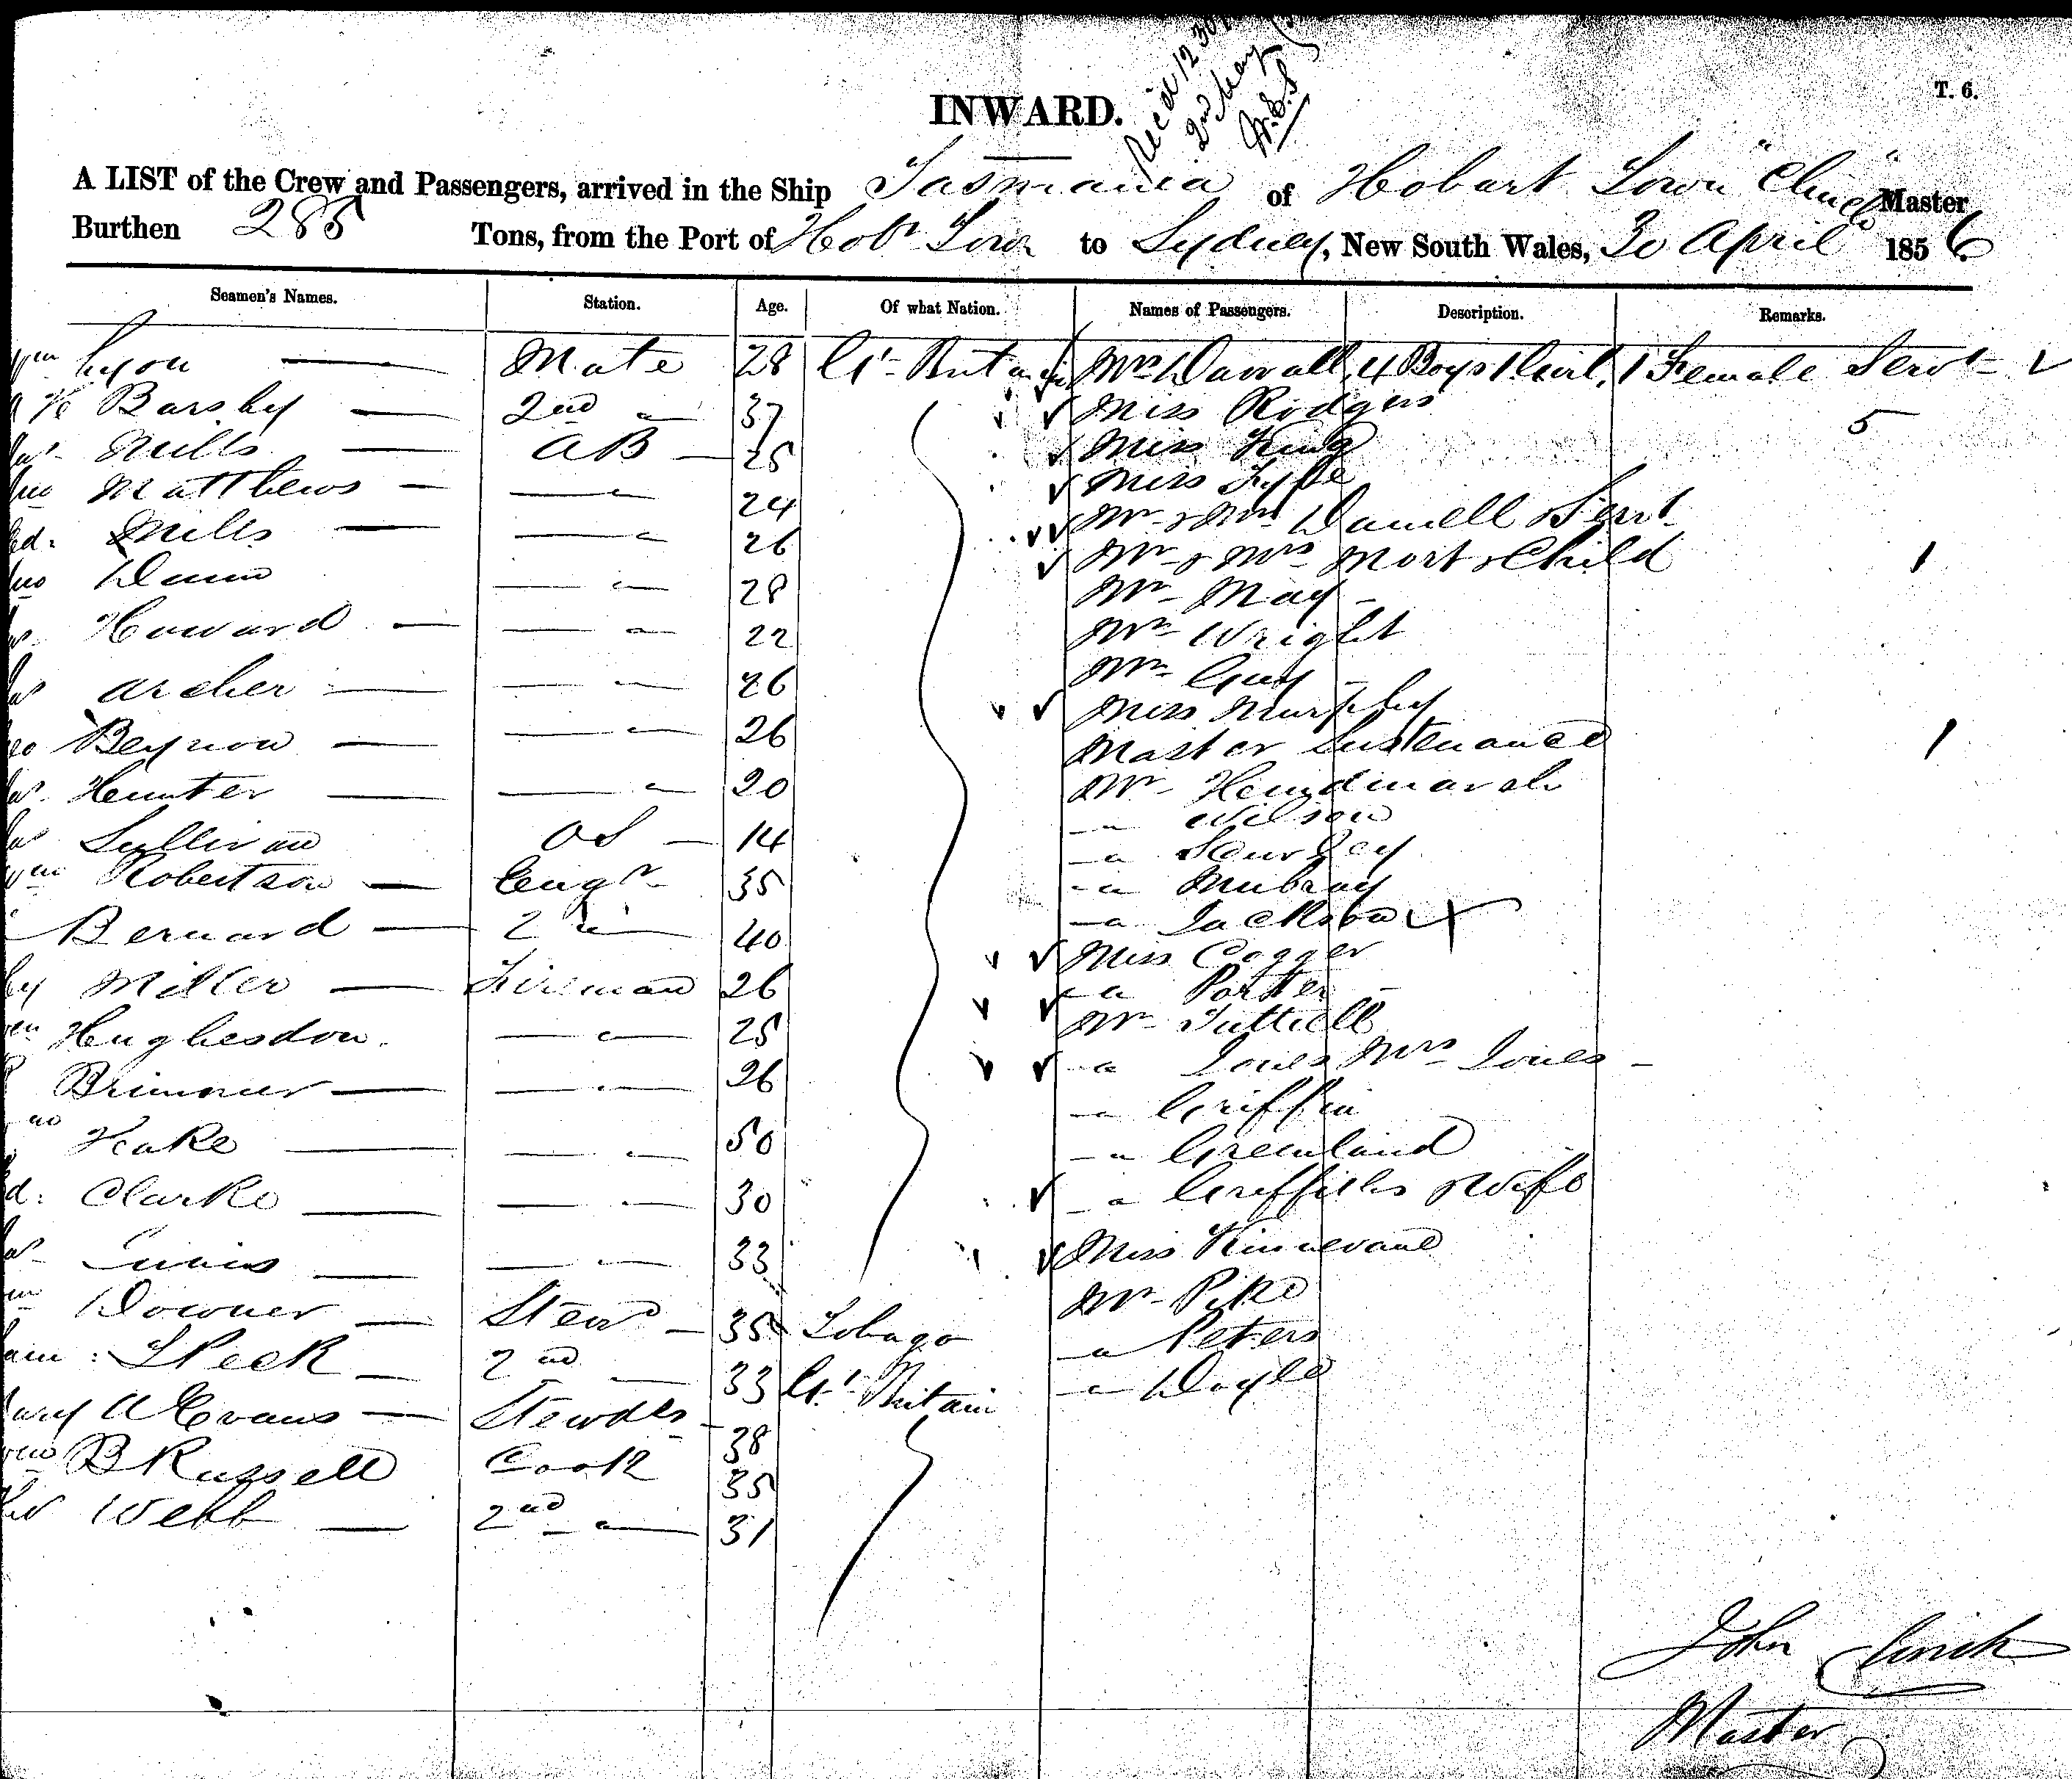 T. 6.
Rec'd 12 30
2nd May
INWARD.
A LIST of the Crew and Passengers, arrived in the Ship Tasmania of Hobart Town "Clinch" Master
Burthen 285 Tons, from the Port of Hobt Town to Sydney, New South Wales, 30 April 1856
Seamen's Names. Station. Age. Of what Nation. Names of Passengers. Description. Remarks.
Lyon — Mate 28 Gt Britain Mrs Darvall, 4 Boys 1 Girl, 1 Female Servt
Barsby — 2nd " 37 Miss Rodgers 5
Mills — AB — 25 Miss King
Matthews — " 24 Miss Fyfe
Mills — " 26 Mr & Mrs Daniell & Servt
Dunn — " 28 Mr & Mrs Mort & Child 1
Howard — " 22 Mr May
Archer — " 26 Mr Wright
Beynon — " 26 Mr Guy
Hunter — " 20 Miss Murphy
Sullivan OS — 14 Master Sustenance 1
Robertson — Engr 35 Mr Hindmarsh
Bernard — 2 " 40 " Wilson
Miller — Fireman 26 "
Hughesdon. — " 25 " Mubray
Brimmer — " 26 " Jackson
Hake — " 50 Miss Cogger
Clarke — " 30 " Porter
— " 33 Mr Tuttiell
Downer — Stewd — 35 Tobago " Jones Mrs Jones
Peck — 2nd — 33 Gt Britain " Griffin
A Evans — Stewdes 38 " Greenland
B Russell Cook 35 " Griffiths & Wife
Webb — 2nd " 31 Miss Kinnevane
Mr Pike
" Peters
" Doyle
John Clinch
Master